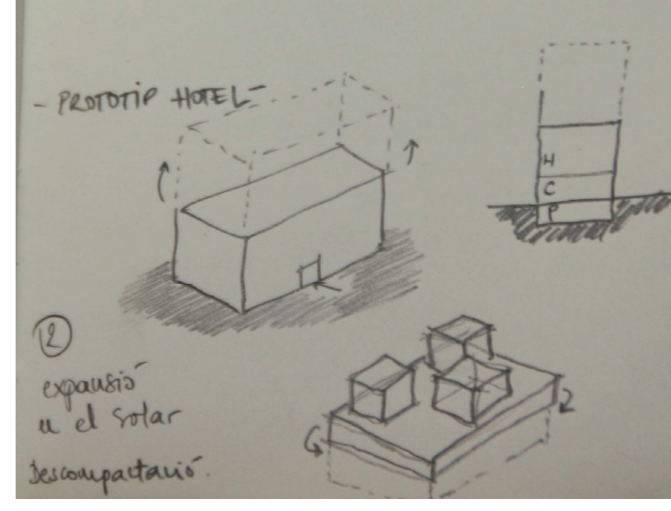 - PROTOTIP HOTEL -
H
C
P
2
expansió
en el solar
Descompactació.